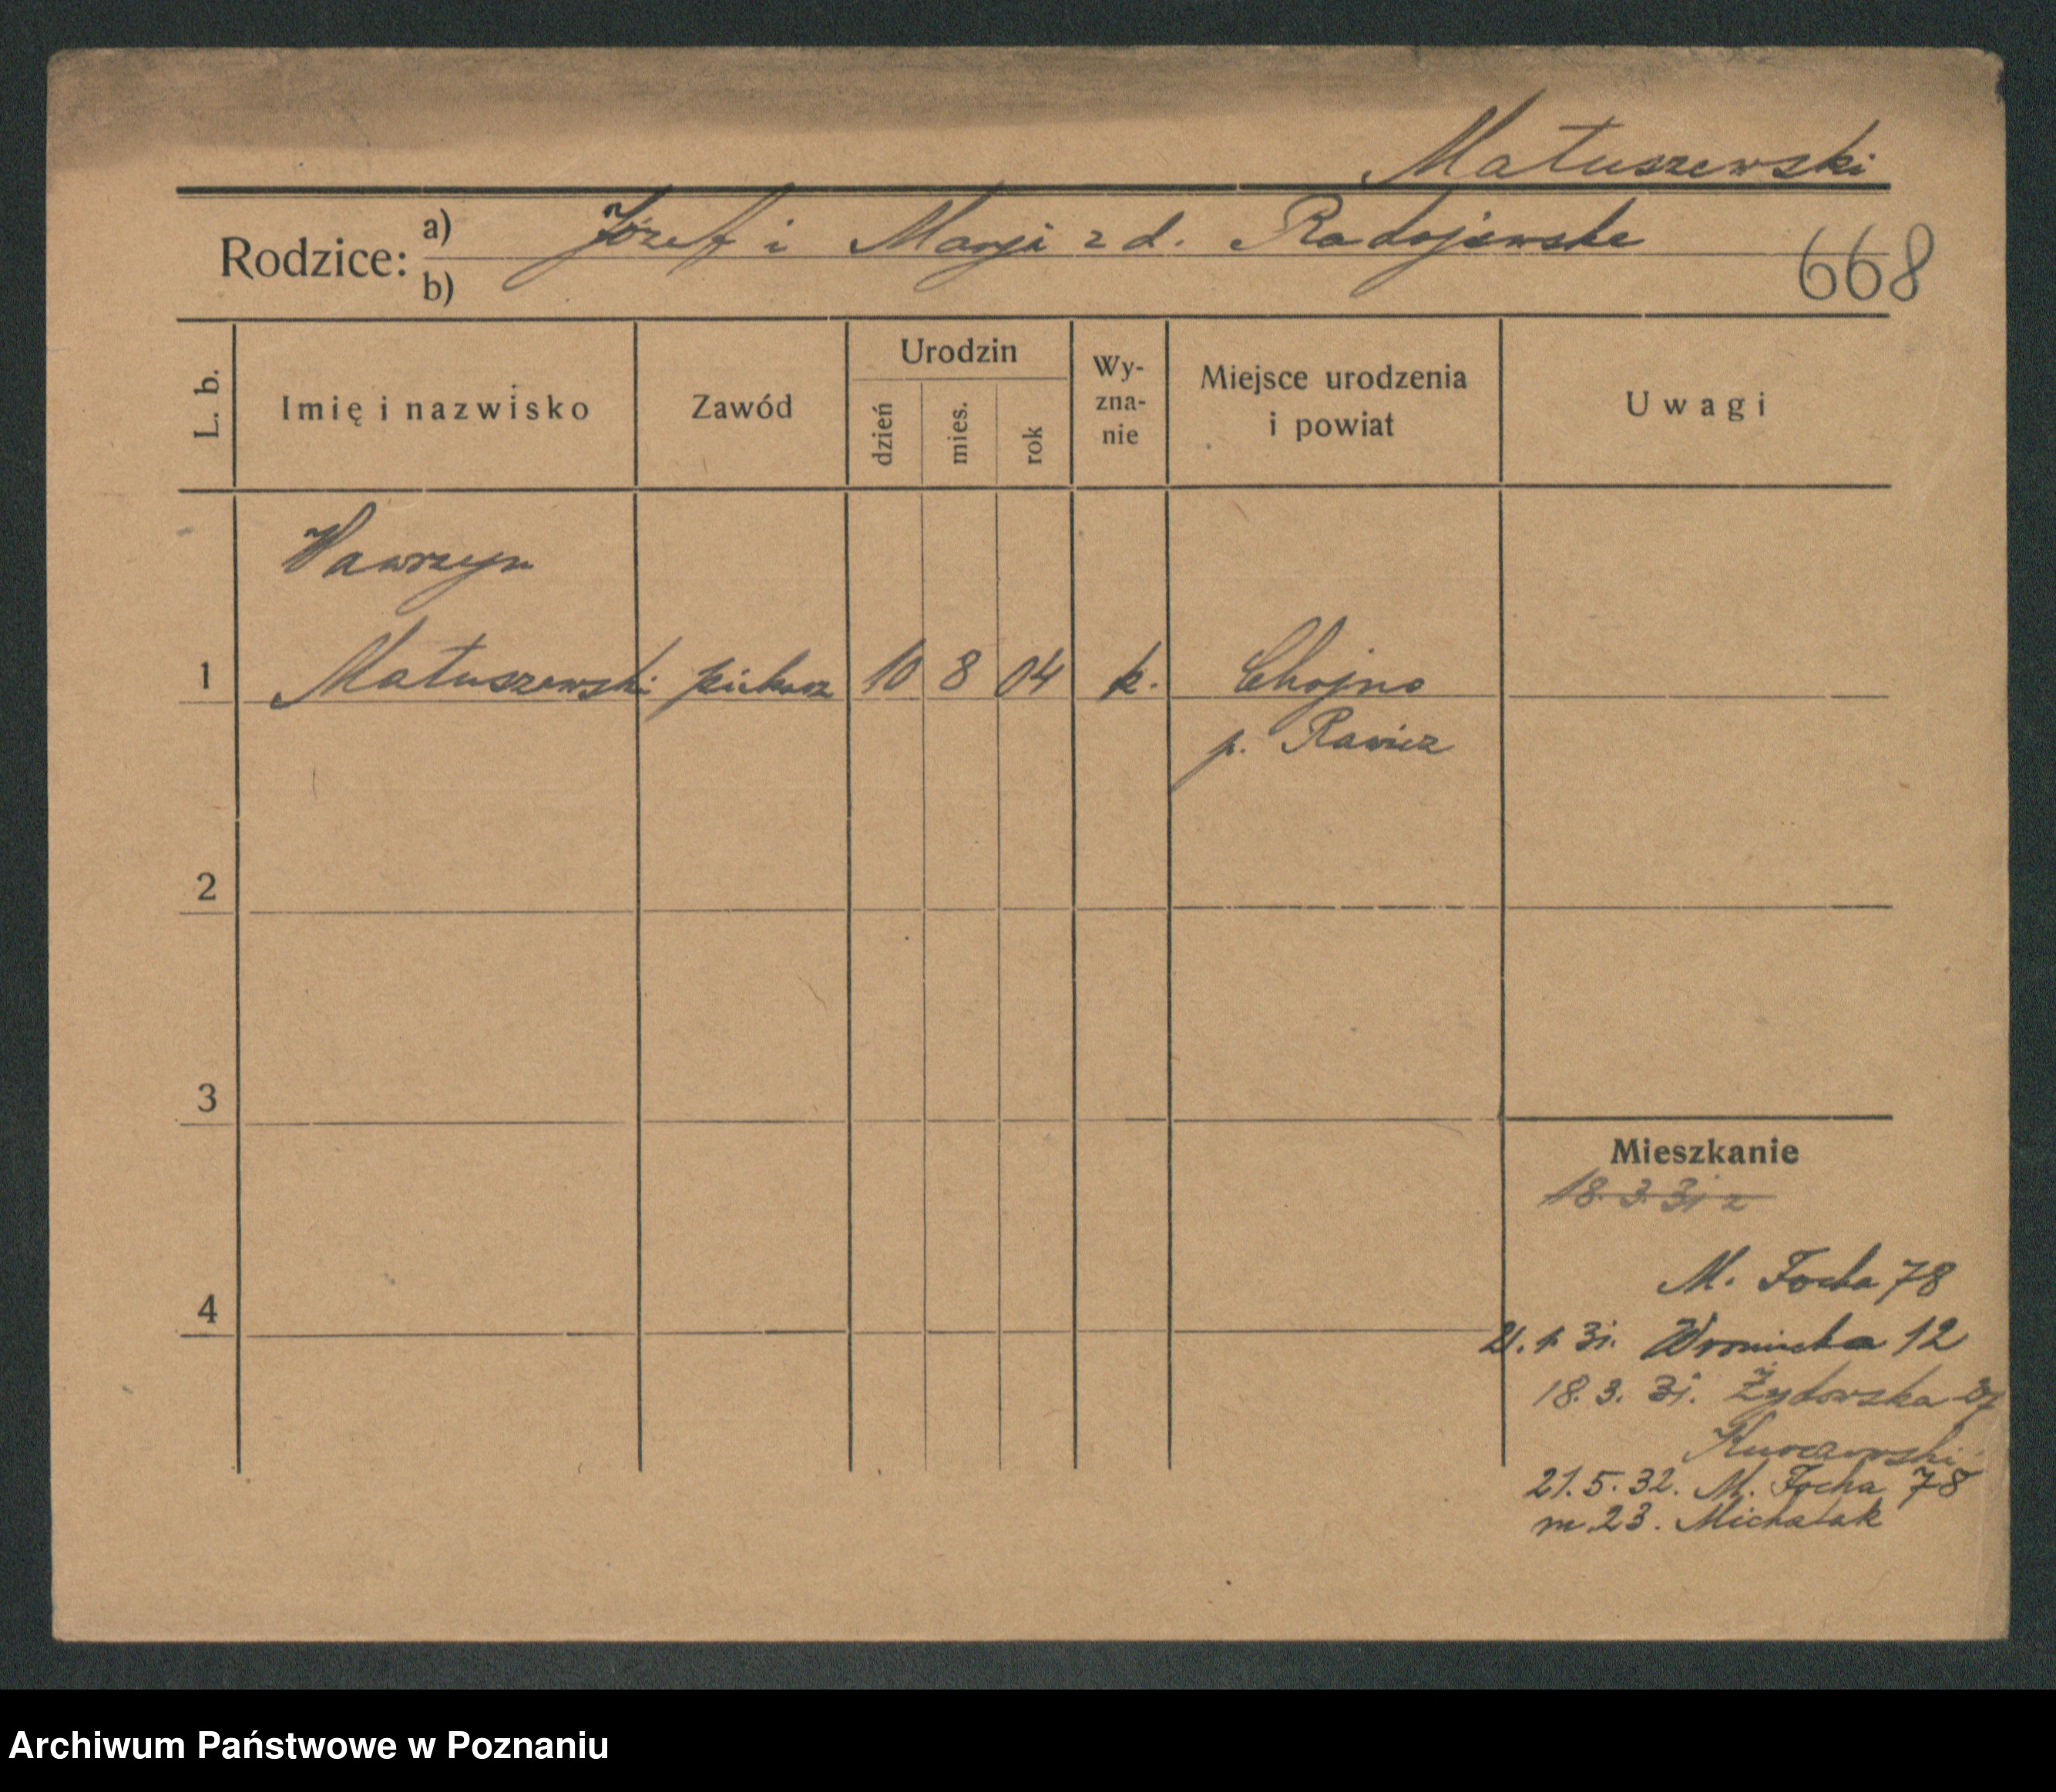 Matuszewski
Rodzice: a) Józef i Marja z d. Radojewska
b)
668
L. b.
Imię i nazwisko
Zawód
Urodzin
dzień
mies.
rok
Wy-
zna-
nie
Miejsce urodzenia
i powiat
Uwagi
Wawrzyn
1 Matuszewski piekarz 10 8 04 k. Chojno
p. Rawicz
2
3
Mieszkanie
18.3.31 z
M. Focha 78
4
21. 1. 31. Wroniecka 12
18. 3. 31. Żydowska
21. 5. 32. M. Focha 78
m. 23. Michalak
Archiwum Państwowe w Poznaniu